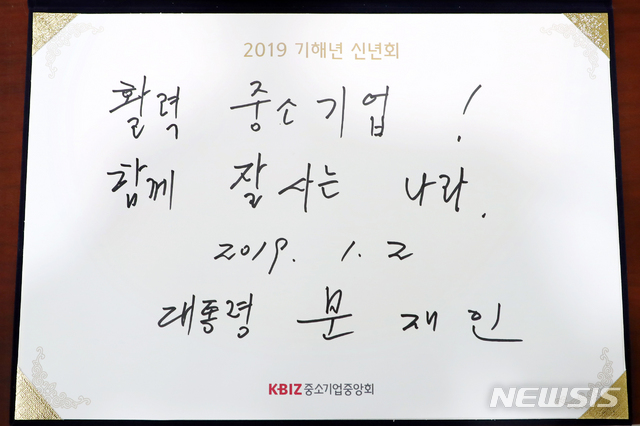 2019 기해년 신년회
활력 중소기업 !
함께 잘사는 나라.
2019. 1. 2
대통령 문 재 인
K·BIZ 중소기업중앙회
NEWSIS